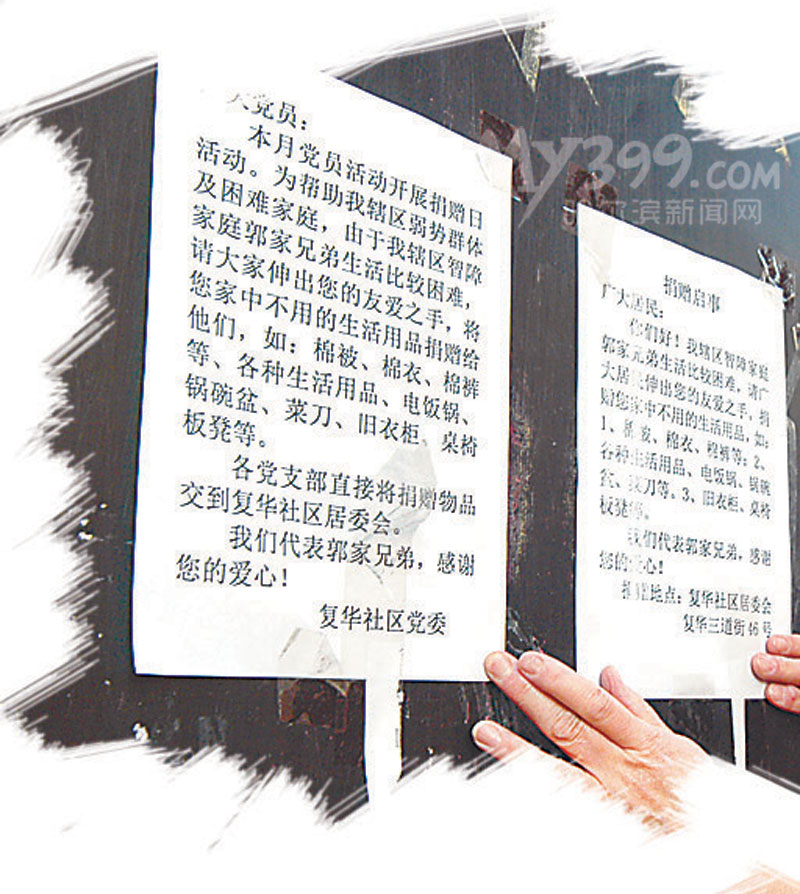 党员：
本月党员活动开展捐赠日
活动。为帮助我辖区弱势群体
及困难家庭，由于我辖区智障
家庭郭家兄弟生活比较困难，
请大家伸出您的友爱之手，将
您家中不用的生活用品捐赠给
他们，如：棉被、棉衣、棉裤
等、各种生活用品、电饭锅、
锅碗盆、菜刀、旧衣柜、桌椅
板凳等。
各党支部直接将捐赠物品
交到复华社区居委会。
我们代表郭家兄弟，感谢
您的爱心！
复华社区党委
捐赠启事
广大居民：
你们好！我辖区智障家庭
郭家兄弟生活比较困难，请广
大居民伸出您的友爱之手，捐
赠您家中不用的生活用品，如：
1、棉被、棉衣、棉裤等；2、
各种生活用品、电饭锅、锅碗
盆、菜刀等。3、旧衣柜、桌椅
板凳等。
我们代表郭家兄弟，感谢
您的爱心！
捐赠地点：复华社区居委会
复华三道街46号
My399.COM
尔滨新闻网